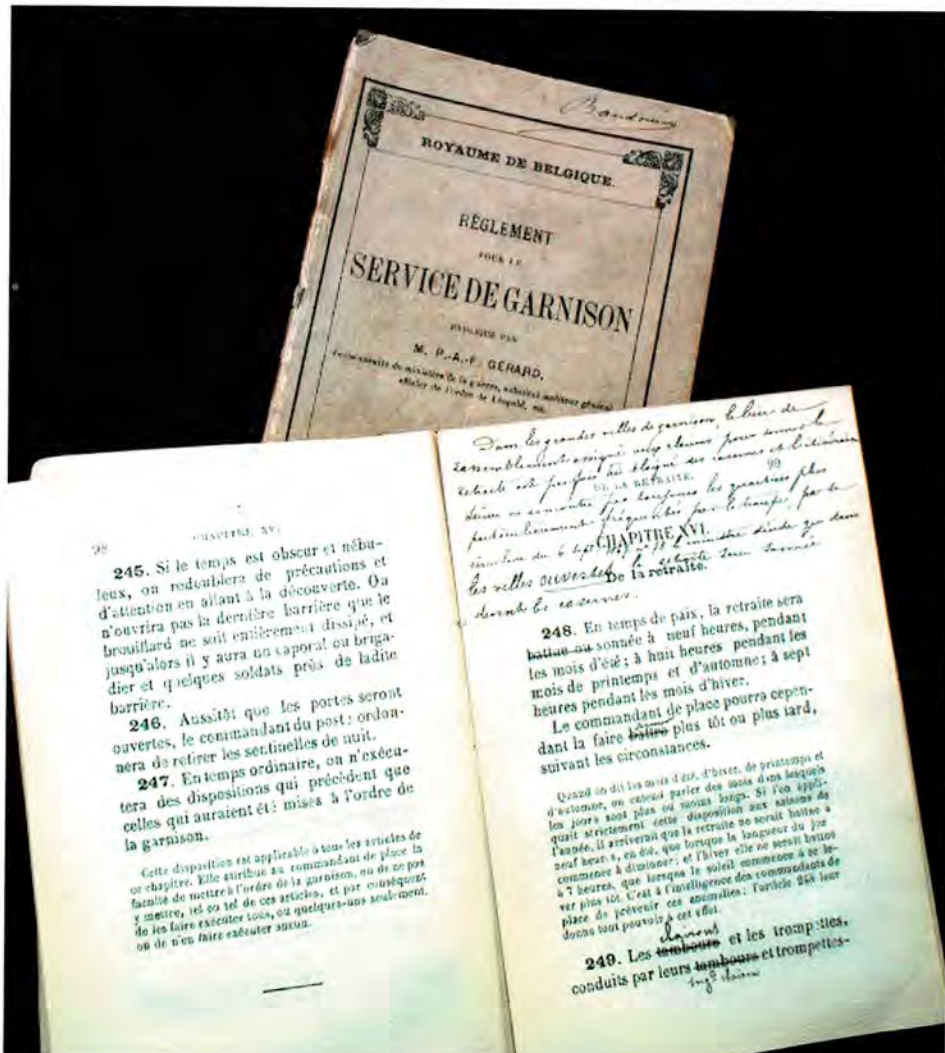 Baudouin
ROYAUME DE BELGIQUE.
RÈGLEMENT
POUR LE
SERVICE DE GARNISON
EXPLIQUÉ PAR
M. P.-A.-F. GÉRARD,
de la guerre, auditeur général
officier de l'ordre de Léopold, etc.
98 CHAPITRE XV.
245. Si le temps est obscur et nébu-
leux, on redoublera de précautions et
d'attention en allant à la découverte. On
n'ouvrira pas la dernière barrière que le
brouillard ne soit entièrement dissipé, et
jusqu'alors il y aura un caporal ou briga-
dier et quelques soldats près de ladite
barrière.
246. Aussitôt que les portes seront
ouvertes, le commandant du post: ordon-
nera de retirer les sentinelles de nuit.
247. En temps ordinaire, on n'exécu-
tera des dispositions qui précèdent que
celles qui auraient été mises à l'ordre de
la garnison.
Cette disposition est applicable à tous les articles de
ce chapitre. Elle attribue au commandant de place la
faculté de mettre à l'ordre de la garnison, ou de ne pas
y mettre, tel ou tel de ces articles, et par conséquent
de les faire exécuter tous, ou quelques-uns seulement,
ou de n'en faire exécuter aucun.
Dans les grandes villes de garnison, le lieu de
rassemblement assigné aux clairons pour sonner la
retraite est parfois très éloigné des casernes et l'itinéraire
suivi ne rencontre pas toujours les quartiers plus
particulièrement fréquentés par la troupe, par sa
circulaire du 6 sept. le ministre décide que dans
les villes ouvertes, la retraite sera sonnée
devant les casernes.
DE LA RETRAITE. 99
CHAPITRE XVI.
De la retraite.
248. En temps de paix, la retraite sera
battue ou sonnée à neuf heures, pendant
les mois d'été; à huit heures pendant les
mois de printemps et d'automne; à sept
heures pendant les mois d'hiver.
Le commandant de place pourra cepen-
dant la faire battre plus tôt ou plus tard,
suivant les circonstances.
Quand on dit les mois d'été, d'hiver, de printemps et
d'automne, on entend parler des mois dans lesquels
les jours sont plus ou moins longs. Si l'on appli-
quait strictement cette disposition aux saisons de
l'année, il arriverait que la retraite ne serait battue à
neuf heures, en été, que lorsque la longueur du jour
commence à diminuer; et l'hiver elle ne serait battue
à 7 heures, que lorsque le soleil commence à se le-
ver plus tôt. C'est à l'intelligence des commandants de
place de prévenir ces anomalies: l'article 248 leur
donne tout pouvoir à cet effet.
clairons
249. Les tambours et les trompettes,
conduits par leurs tambours et trompettes-
clairon